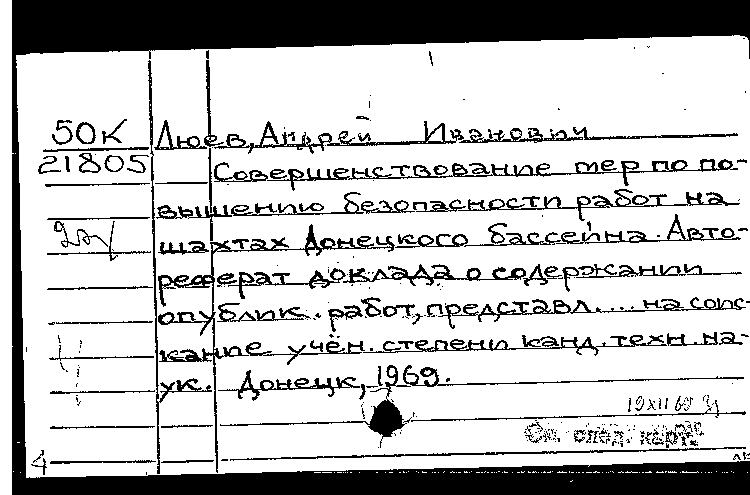 50К Люев, Андрей Иванович
21805 Совершенствование мер по по-
вышению безопасности работ на
шахтах Донецкого бассейна. Авто-
реферат доклада о содержании
опублик. работ, представл. ... на соис-
кание учён. степени канд. техн. на-
ук. Донецк, 1969.
19XII 69
См. след. карт.
4